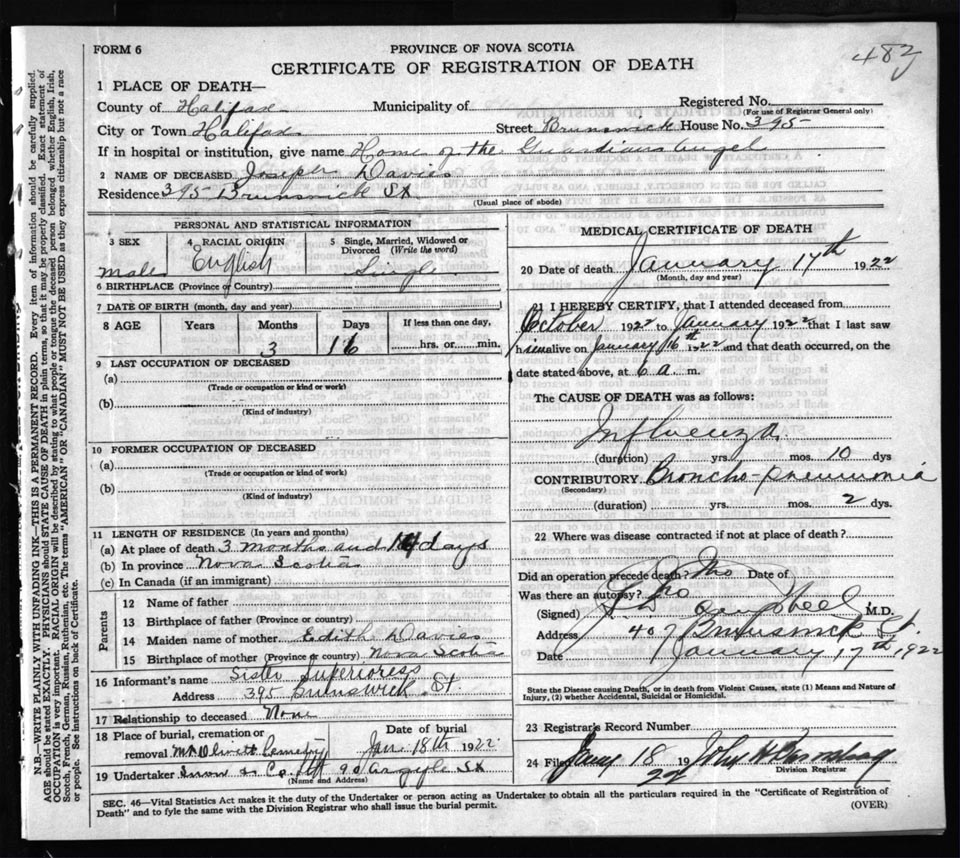 482
FORM 6
PROVINCE OF NOVA SCOTIA
CERTIFICATE OF REGISTRATION OF DEATH
1 PLACE OF DEATH—
County of Halifax Municipality of Registered No.
(For use of Registrar General only)
City or Town Halifax Street Brunswick House No. 395
If in hospital or institution, give name Home of the Guardian Angel
2 NAME OF DECEASED Joseph Davies
Residence 395 Brunswick St
(Usual place of abode)
PERSONAL AND STATISTICAL INFORMATION
3 SEX 4 RACIAL ORIGIN 5 Single, Married, Widowed or Divorced (Write the word)
Male English Single
6 BIRTHPLACE (Province or Country)
7 DATE OF BIRTH (month, day and year)
8 AGE Years Months Days If less than one day,
3 16 hrs. or min.
9 LAST OCCUPATION OF DECEASED
(a)
(Trade or occupation or kind or work)
(b)
(Kind of industry)
10 FORMER OCCUPATION OF DECEASED
(a)
(Trade or occupation or kind of work)
(b)
(Kind of industry)
11 LENGTH OF RESIDENCE (In years and months)
(a) At place of death 3 months and days
(b) In province Nova Scotia
(c) In Canada (if an immigrant)
Parents
12 Name of father
13 Birthplace of father (Province or country)
14 Maiden name of mother Edith Davies
15 Birthplace of mother (Province or country) Nova Scotia
16 Informant's name Sister Superioress
Address 395 Brunswick St
17 Relationship to deceased None
18 Place of burial, cremation or removal Mt Olivett Cemetery Date of burial Jan 18th 1922
19 Undertaker Snow & Co 90 Argyle St
(Name and Address)
MEDICAL CERTIFICATE OF DEATH
20 Date of death January 17th 1922
(Month, day and year)
21 I HEREBY CERTIFY, that I attended deceased from
October 1922 to January 1922 that I last saw
him alive on January 16th 1922 and that death occurred, on the
date stated above, at 6 a. m.
The CAUSE OF DEATH was as follows:
Influenza
(duration) yrs. mos. 10 dys
CONTRIBUTORY Broncho-pneumonia
(Secondary)
(duration) yrs. mos. 2 dys.
22 Where was disease contracted if not at place of death?
Did an operation precede death? No Date of
Was there an autopsy? No
(Signed) M.D.
Address 407 Brunswick St.
Date January 17th 1922
State the Disease causing Death, or in death from Violent Causes, state (1) Means and Nature of
Injury, (2) whether Accidental, Suicidal or Homicidal.
23 Registrar's Record Number
24 Filed Jany 18 19 22 John
Division Registrar
SEC. 46—Vital Statistics Act makes it the duty of the Undertaker or person acting as Undertaker to obtain all the particulars required in the "Certificate of Registration of
Death" and to fyle the same with the Division Registrar who shall issue the burial permit. (OVER)
N.B.—WRITE PLAINLY WITH UNFADING INK—THIS IS A PERMANENT RECORD. Every item of information should be carefully supplied.
AGE should be stated EXACTLY. PHYSICIANS should STATE CAUSE OF DEATH in plain terms, so that it may be properly classified. Exact statement of
OCCUPATION is very important. RACIAL ORIGIN will be described by stating to what people or tongue the deceased person belonged whether English, Irish,
Scotch, French, German, Russian, Ruthenian, etc. The terms "AMERICAN" OR "CANADIAN" MUST NOT BE USED as they express citizenship but not a race
or people. See instructions on back of Certificate.